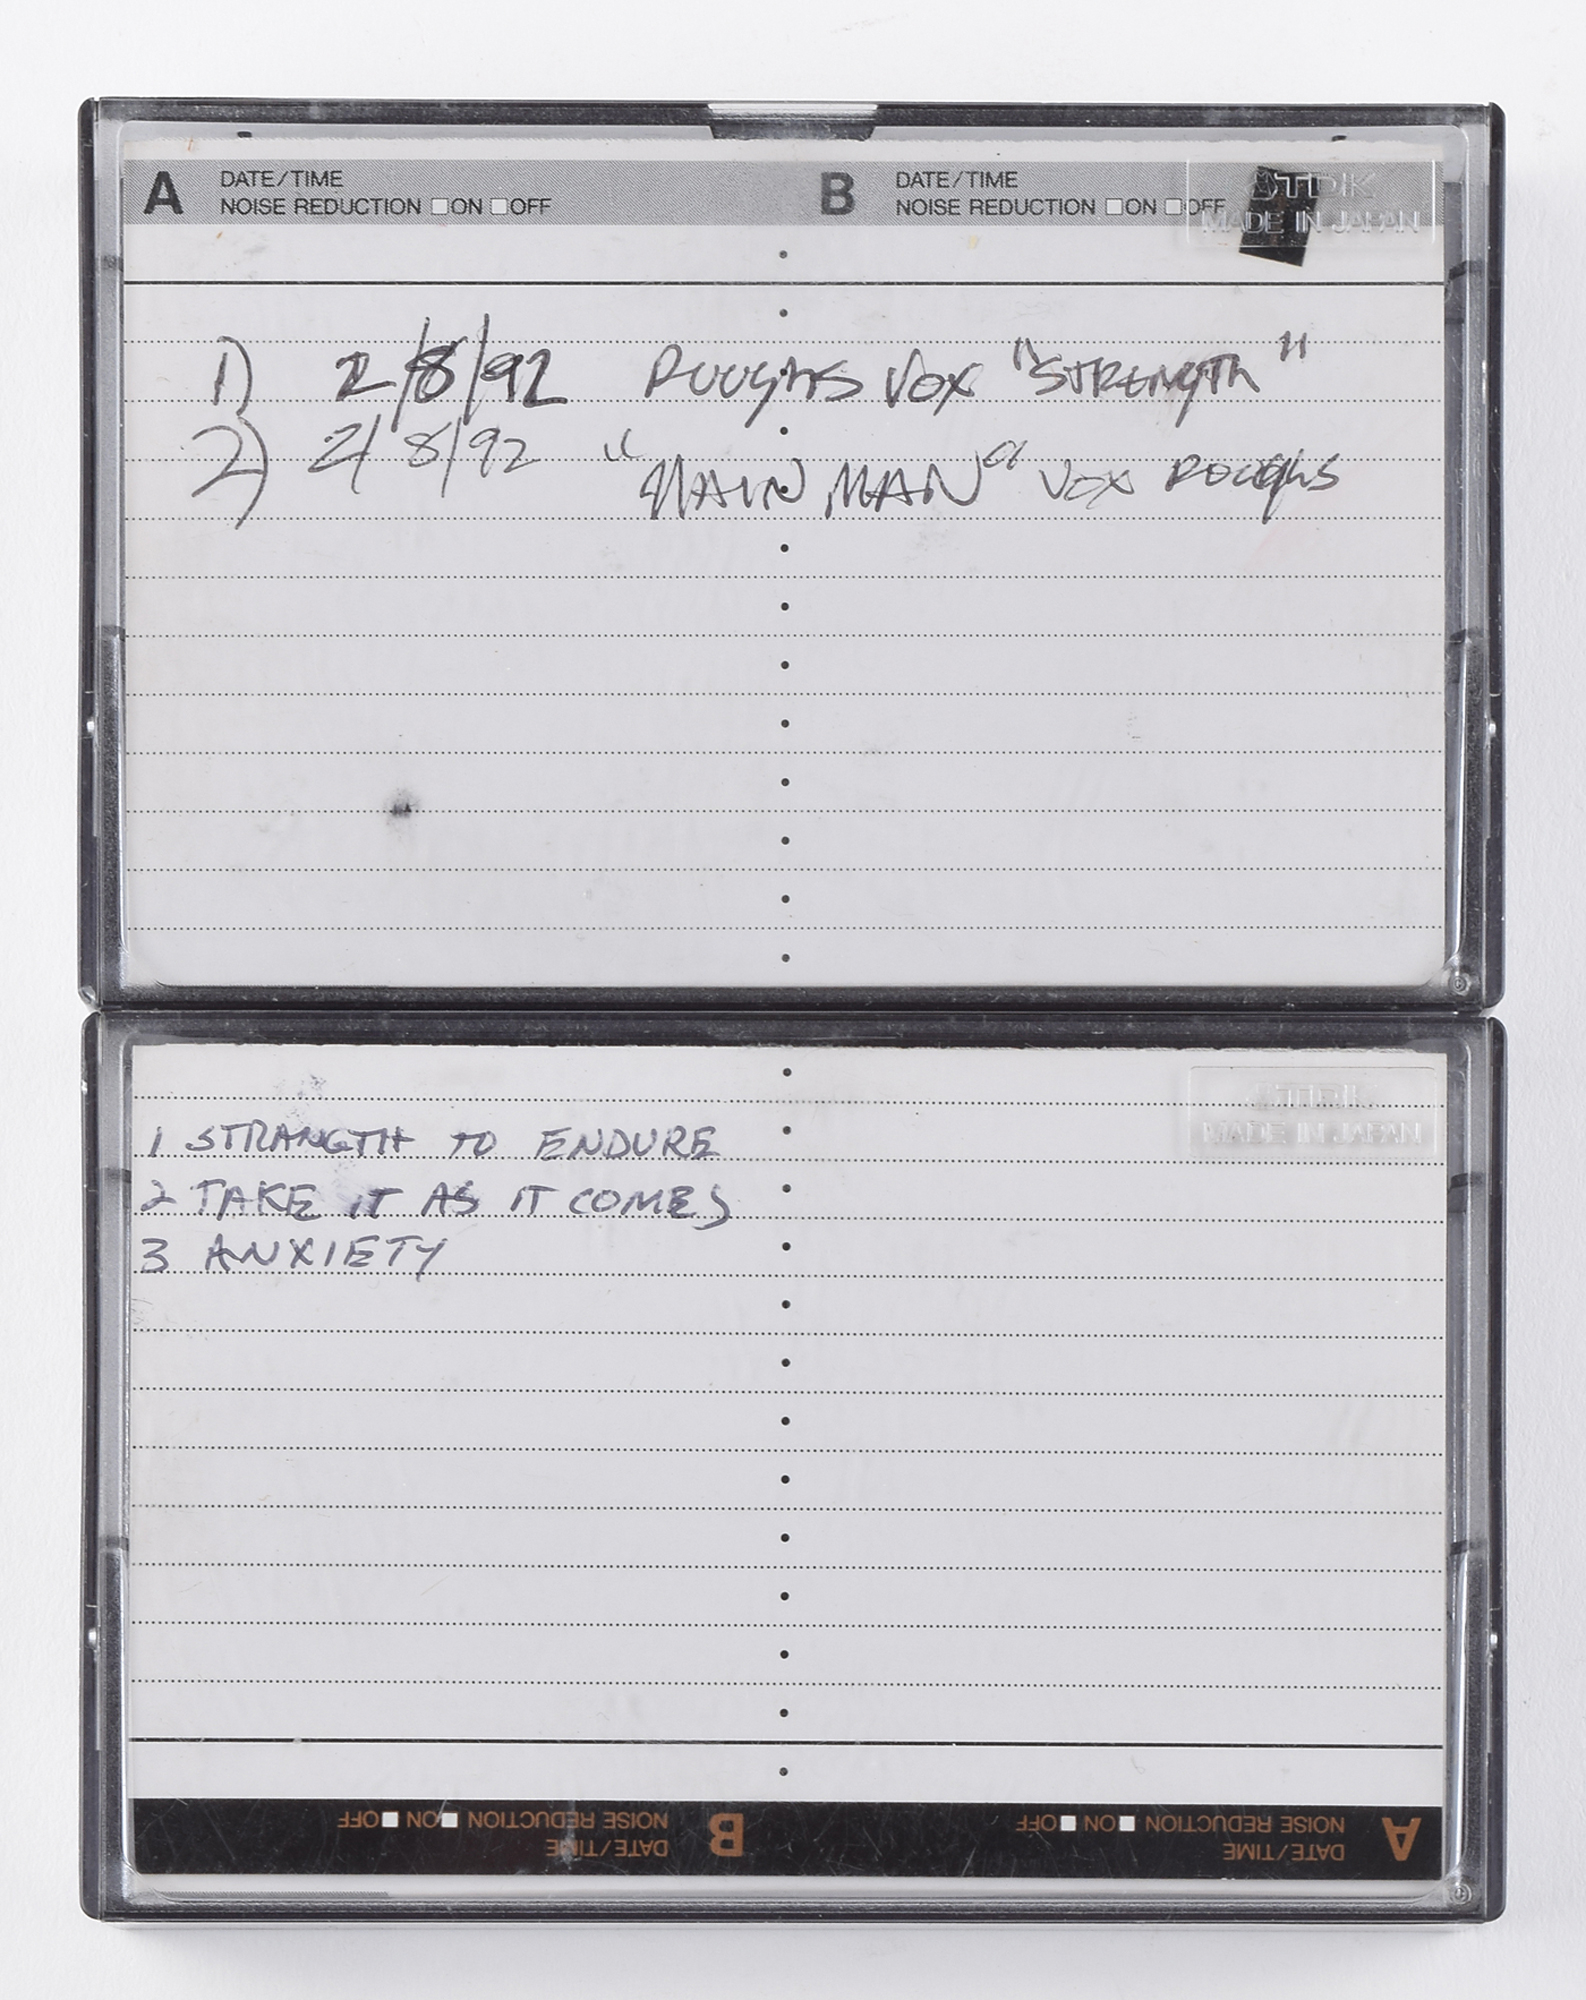 A DATE/TIME B DATE/TIME
NOISE REDUCTION □ON □OFF NOISE REDUCTION □ON □OFF
TDK
MADE IN JAPAN
1) 2/8/92 ROUGHS VOX "STRENGTH"
2) 2/8/92 "MAIN MAN" VOX ROUGHS
TDK
MADE IN JAPAN
1 STRANGTH TO ENDURE
2 TAKE IT AS IT COMES
3 ANXIETY
A DATE/TIME B DATE/TIME
NOISE REDUCTION ■ON ■OFF NOISE REDUCTION ■ON ■OFF